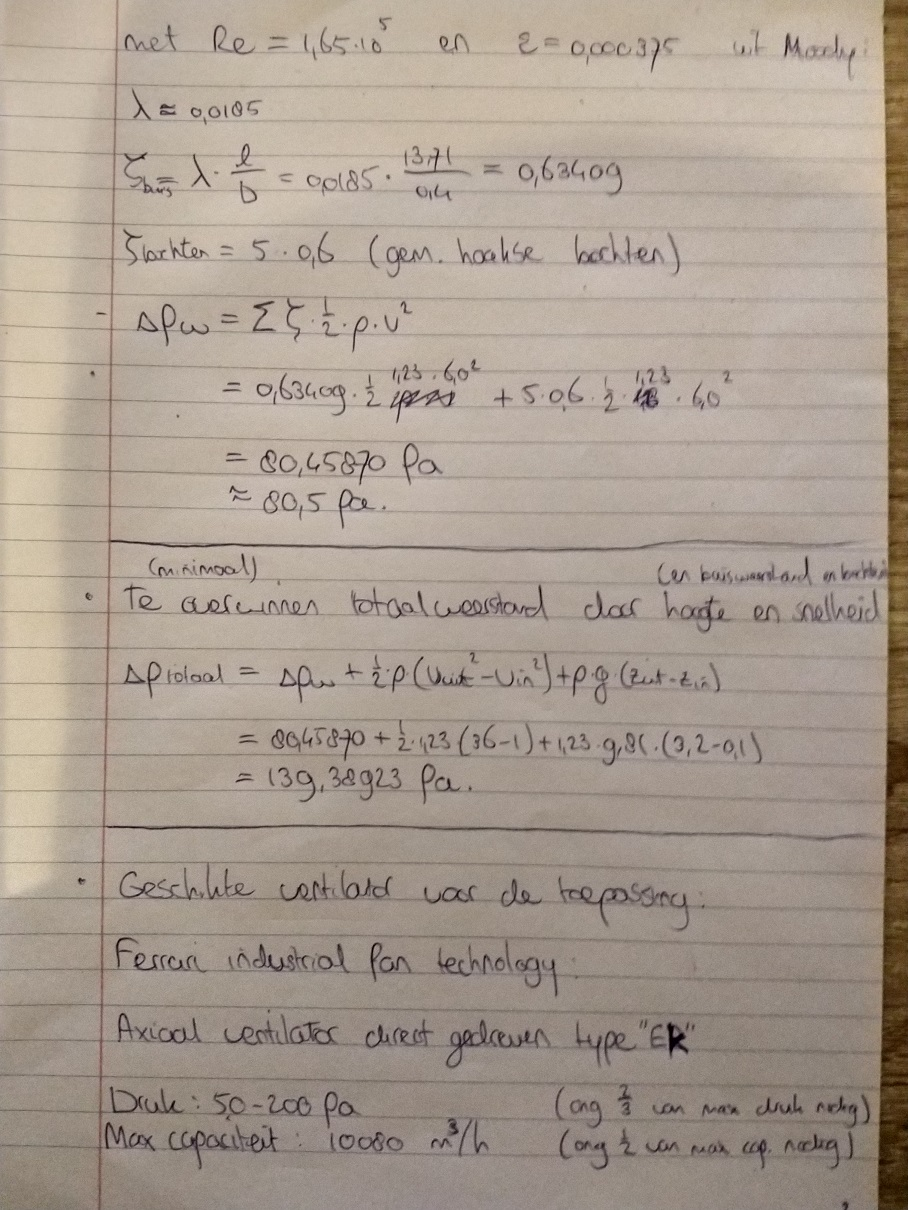 met Re = 1,65·10⁵ en ε = 0,000375 uit Moody:
λ ≈ 0,0185
ζbuis = λ · l/D = 0,0185 · 13,71/0,4 = 0,63409
ζbochten = 5 · 0,6 (gem. hoekse bochten)
- Δpw = Σ ζ · ½ · ρ · v²
= 0,63409 · ½ 1,23 · 6,0² + 5 · 0,6 · ½ · 1,23 · 6,0²
= 80,45870 Pa
≈ 80,5 Pa.
(minimaal) (en buisweerstand en
• Te overwinnen totaalweerstand door hoogte en snelheid
Δptotaal = Δpw + ½·ρ (Vuit² - Vin²) + ρ·g·(zuit - zin)
= 80,45870 + ½·1,23 (36-1) + 1,23 · 9,81 · (3,2-0,1)
= 139,38923 Pa.
• Geschikte ventilator voor de toepassing:
Ferrari industrial fan technology:
Axiaal ventilator direct gedreven type "ER"
Druk: 50-200 Pa (ong ⅔ van max druk nodig)
Max capaciteit: 10080 m³/h (ong ½ van max cap. nodig)